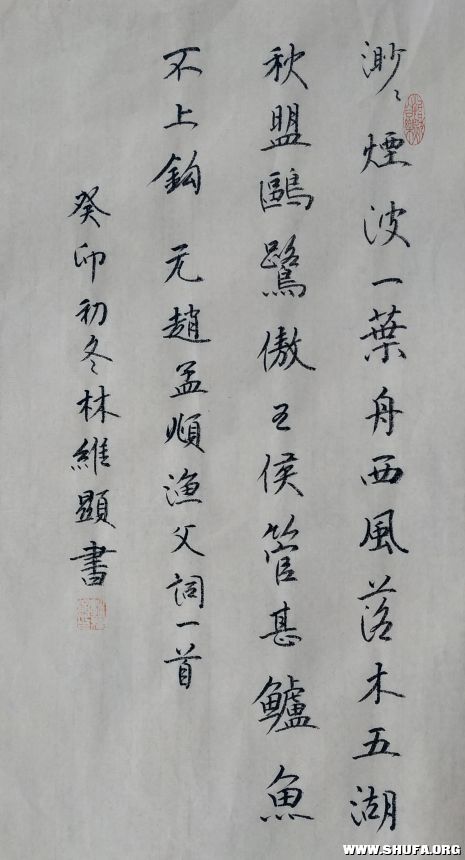 渺〻煙波一葉舟西風落木五湖
秋盟鷗鷺傲王侯管甚鱸魚
不上鈎 元趙孟頫漁父詞一首
癸卯初冬林維顕書
WWW.SHUFA.ORG